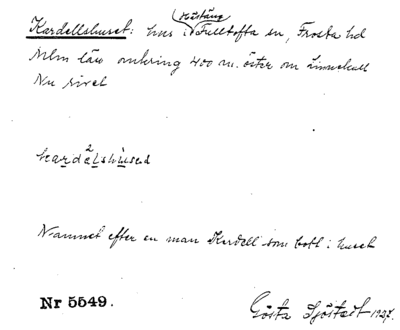 Kardellshuset: hus i Nästäng Fulltofta sn, Frosta hd
Mlm län omkring 400 m. öster om Linnekull
Nu rivet
Namnet efter en man Kardell som bott i huset
Nr 5549.
Gösta Sjöstedt 1927.